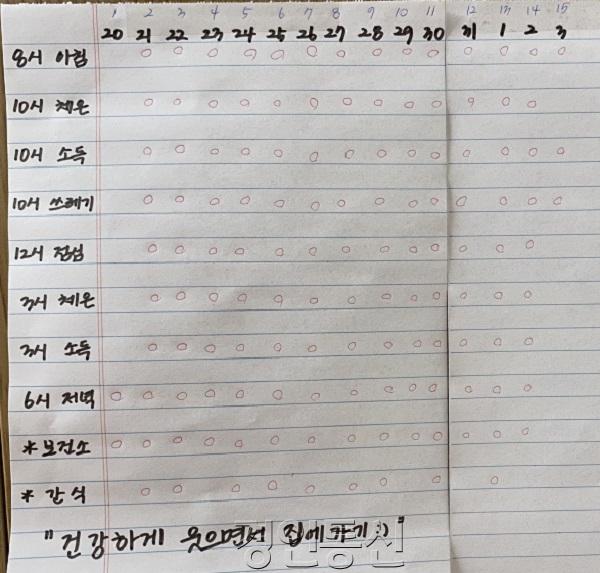 1 2 3 4 5 6 7 8 9 10 11 12 13 14 15
20 21 22 23 24 25 26 27 28 29 30 31 1 2 3
8시 아침 ○ ○ ○ ○ ○ ○ ○ ○ ○ ○ ○ ○ ○ ○
10시 체온 ○ ○ ○ ○ ○ ○ ○ ○ ○ ○ ○ ○ ○
10시 소독 ○ ○ ○ ○ ○ ○ ○ ○ ○ ○ ○ ○ ○ ○
10시 쓰레기 ○ ○ ○ ○ ○ ○ ○ ○ ○ ○ ○ ○ ○ ○
12시 점심 ○ ○ ○ ○ ○ ○ ○ ○ ○ ○ ○ ○ ○
3시 체온 ○ ○ ○ ○ ○ ○ ○ ○ ○ ○ ○ ○ ○
3시 소독 ○ ○ ○ ○ ○ ○ ○ ○ ○ ○ ○ ○ ○
6시 저녁 ○ ○ ○ ○ ○ ○ ○ ○ ○ ○ ○ ○ ○ ○
* 보건소 ○ ○ ○ ○ ○ ○ ○ ○ ○ ○ ○ ○ ○ ○
* 간식 ○ ○ ○ ○ ○ ○ ○ ○ ○
"건강하게 웃으면서 집에가기:)"
경인통신